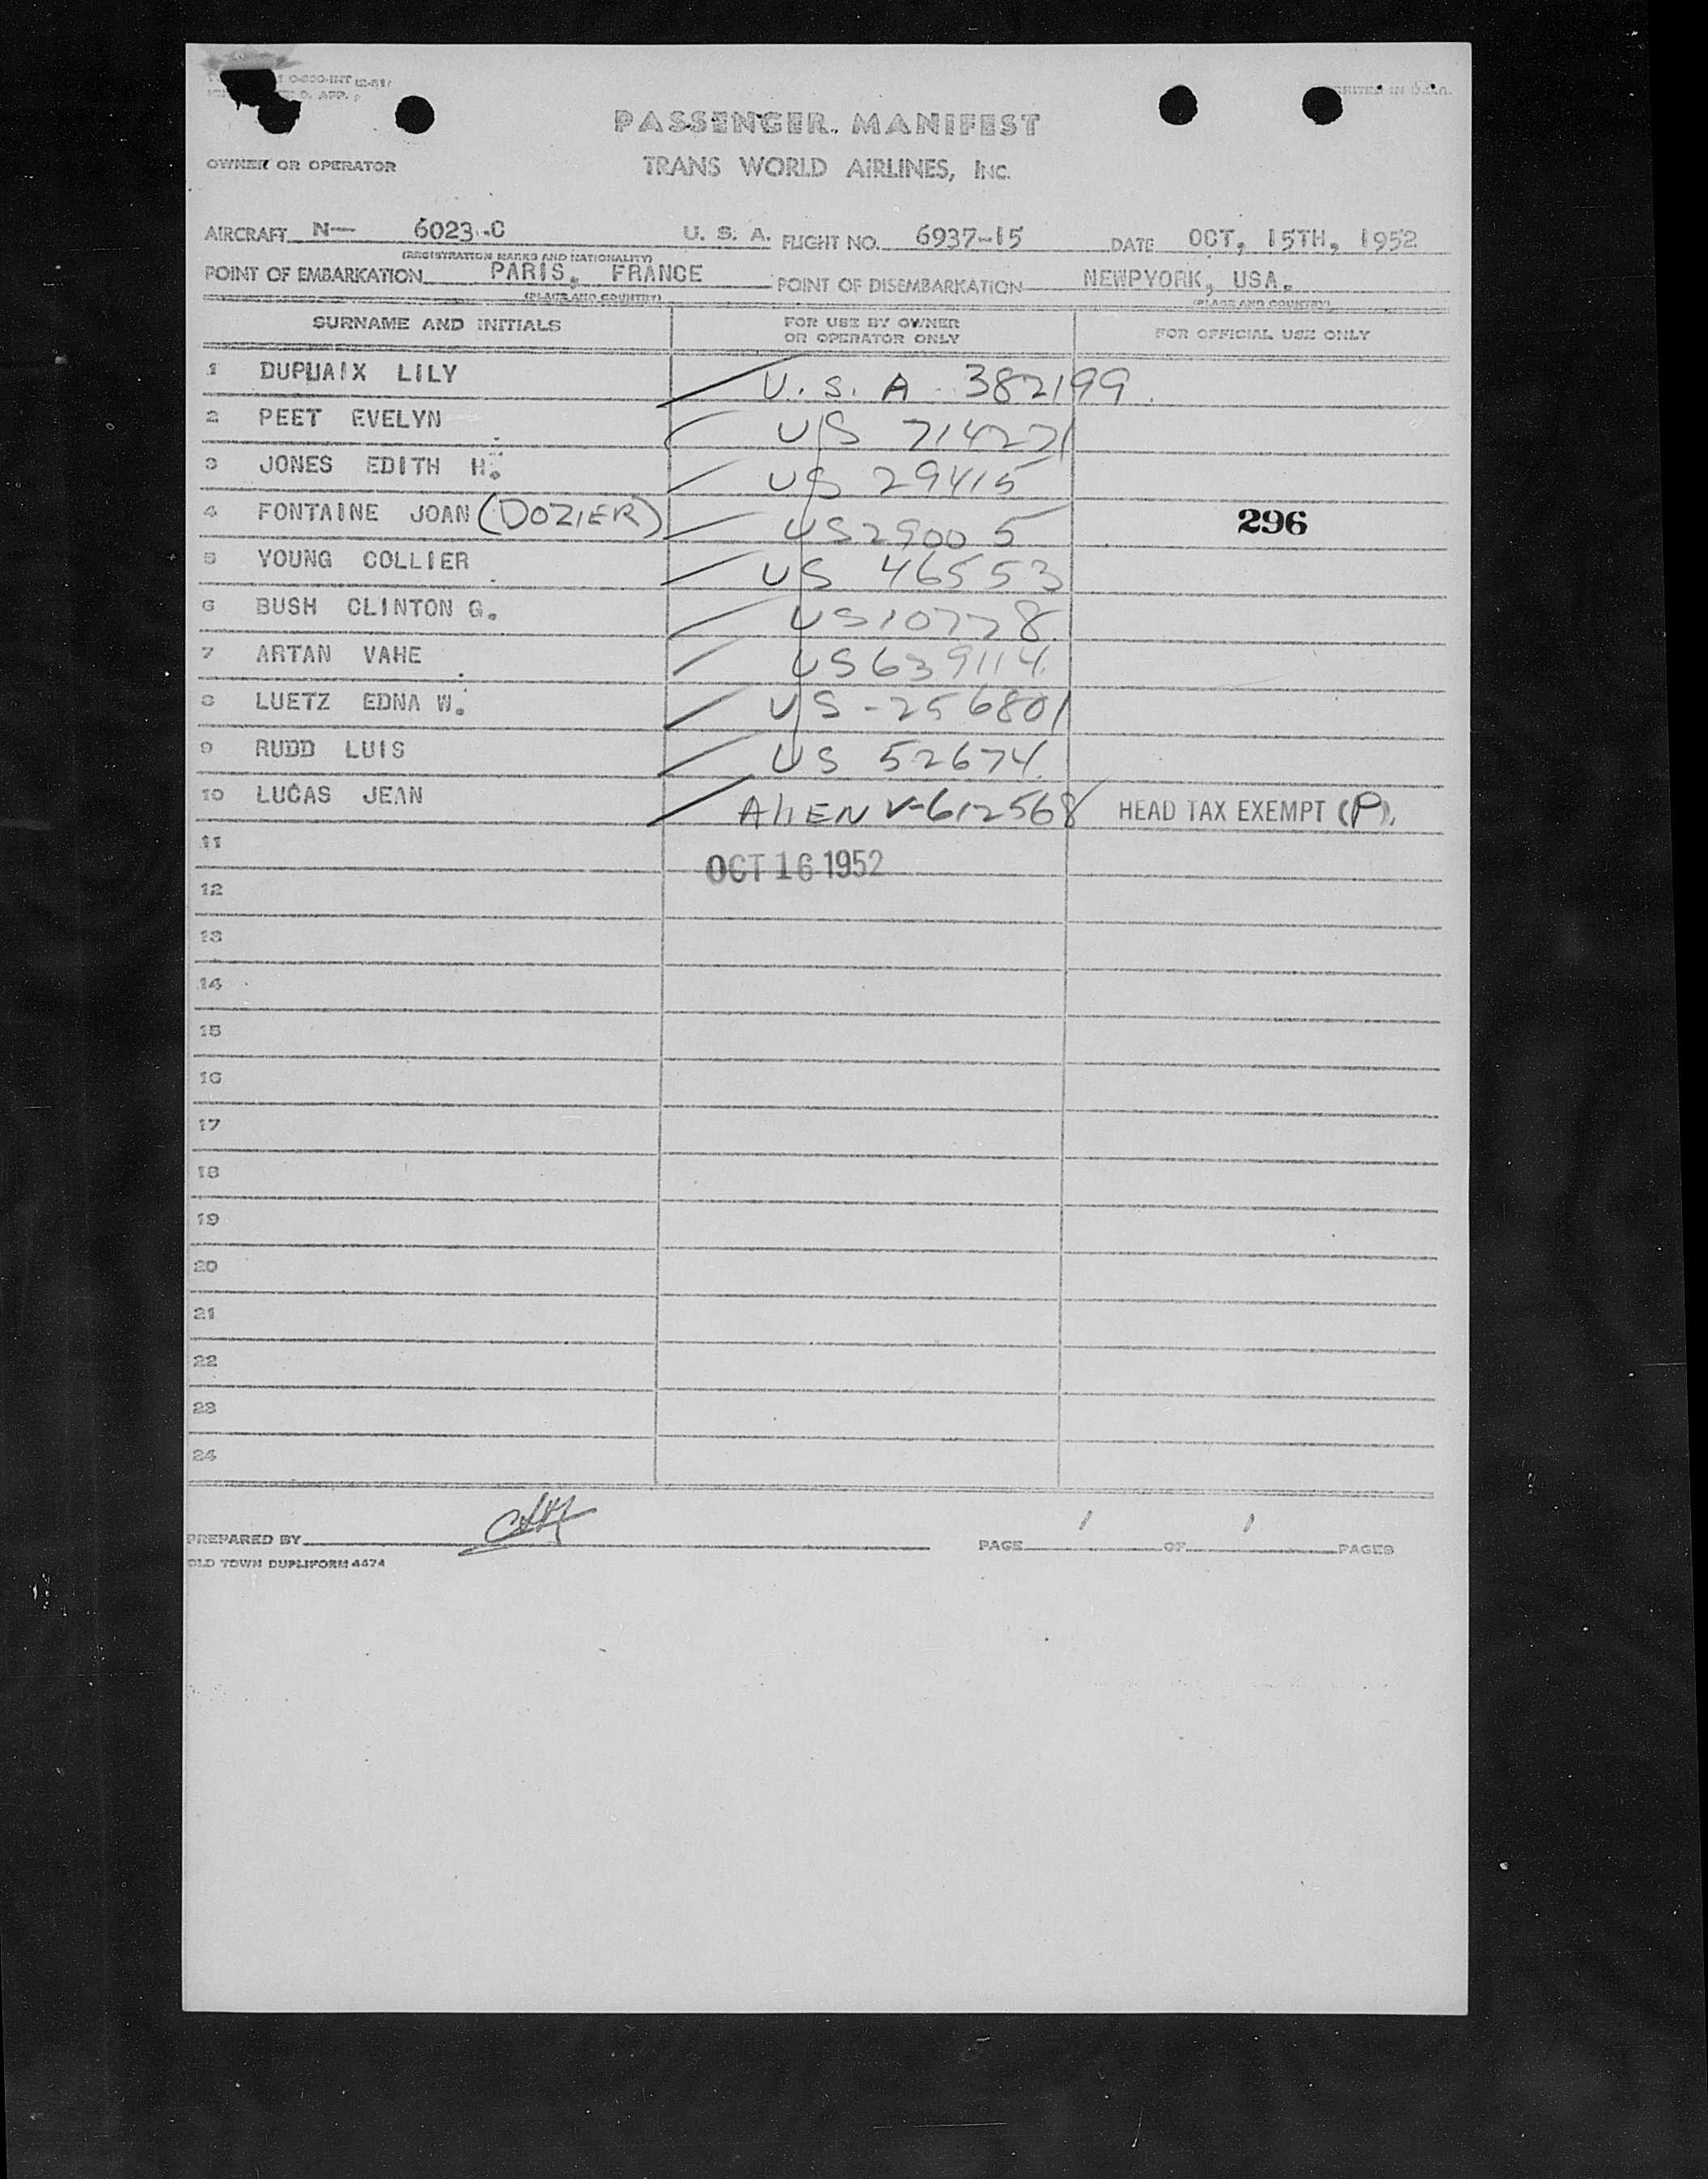 PRINTED IN U.S.A.
PASSENGER MANIFEST
OWNER OR OPERATOR TRANS WORLD AIRLINES, INC.
AIRCRAFT N— 6023-C U. S. A. FLIGHT NO. 6937-15 DATE OCT, 15TH, 1952
(REGISTRATION MARKS AND NATIONALITY)
POINT OF EMBARKATION PARIS, FRANCE POINT OF DISEMBARKATION NEWPYORK, USA.
(PLACE AND COUNTRY) (PLACE AND COUNTRY)
SURNAME AND INITIALS FOR USE BY OWNER OR OPERATOR ONLY FOR OFFICIAL USE ONLY
1 DUPUAIX LILY U.S.A 382199
2 PEET EVELYN US 714271
3 JONES EDITH H. US 29415
4 FONTAINE JOAN (DOZIER) US 29005 296
5 YOUNG COLLIER US 46553
6 BUSH CLINTON G. US 10778
7 ARTAN VAHE US 639114
8 LUETZ EDNA W. US-256801
9 RUDD LUIS US 52674
10 LUCAS JEAN AliEN V-612568 HEAD TAX EXEMPT (P).
11
OCT 16 1952
12
13
14
15
16
17
18
19
20
21
22
23
24
PREPARED BY PAGE 1 OF 1 PAGES
OLD TOWN DUPLIFORM 4474